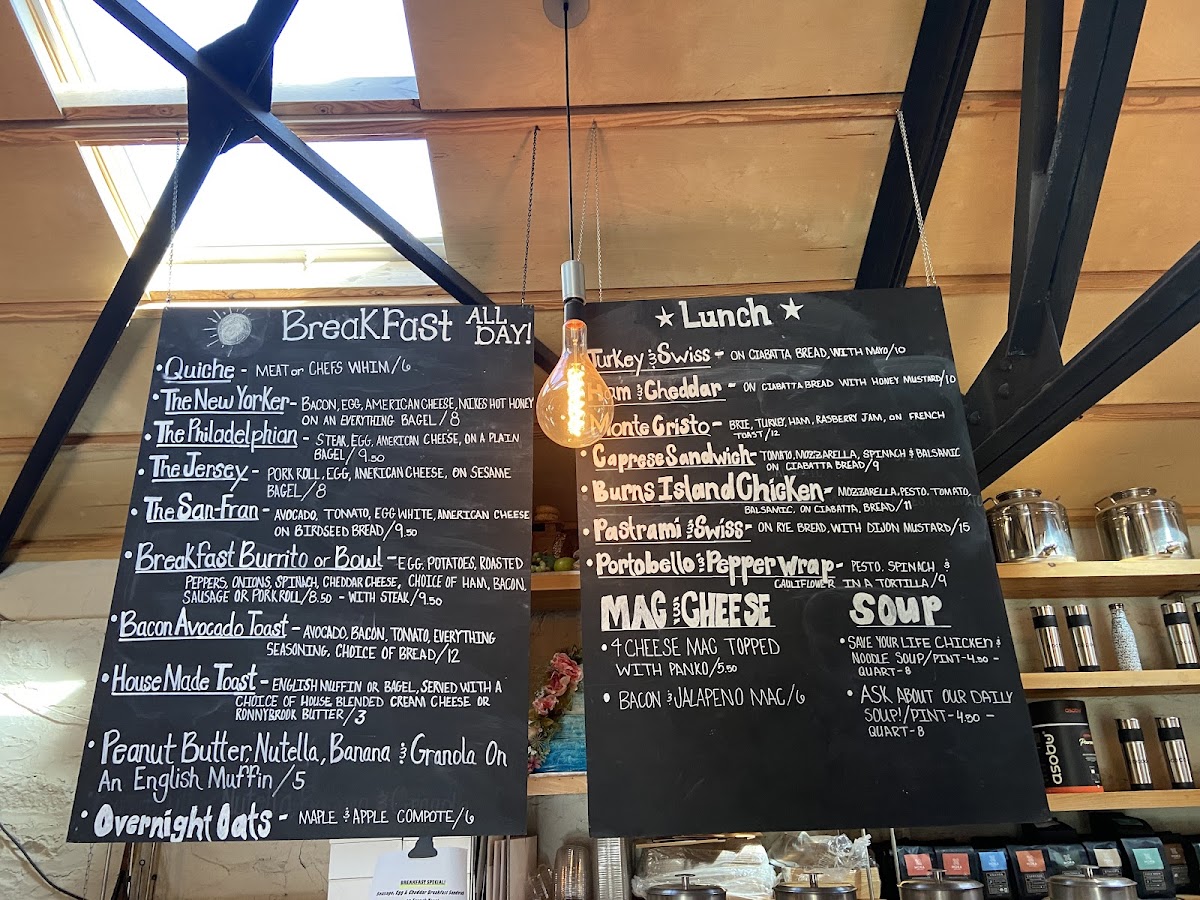 BreakFast ALL DAY!
• Quiche - MEAT or CHEFS WHIM/6
• The New Yorker - BACON, EGG, AMERICAN CHEESE, MIKES HOT HONEY
ON AN EVERYTHING BAGEL/8
• The Philadelphian - STEAK, EGG, AMERICAN CHEESE, ON A PLAIN
BAGEL/9.50
• The Jersey - PORK ROLL, EGG, AMERICAN CHEESE, ON SESAME
BAGEL/8
• The San-Fran - AVOCADO, TOMATO, EGG WHITE, AMERICAN CHEESE
ON BIRDSEED BREAD/9.50
• Breakfast Burrito or Bowl - EGG, POTATOES, ROASTED
PEPPERS, ONIONS, SPINACH, CHEDDAR CHEESE, CHOICE OF HAM, BACON,
SAUSAGE OR PORK ROLL/8.50 - WITH STEAK/9.50
• Bacon Avocado Toast - AVOCADO, BACON, TOMATO, EVERYTHING
SEASONING, CHOICE OF BREAD/12
• House Made Toast - ENGLISH MUFFIN OR BAGEL, SERVED WITH A
CHOICE OF HOUSE BLENDED CREAM CHEESE OR
RONNYBROOK BUTTER/3
• Peanut Butter, Nutella, Banana & Granola On
An English Muffin/5
• Overnight Oats - MAPLE & APPLE COMPOTE/6
★ Lunch ★
Turkey & Swiss - ON CIABATTA BREAD, WITH MAYO/10
Ham & Cheddar - ON CIABATTA BREAD WITH HONEY MUSTARD/10
Monte Cristo - BRIE, TURKEY, HAM, RASBERRY JAM, ON FRENCH
TOAST/12
• Caprese Sandwich - TOMATO, MOZZARELLA, SPINACH & BALSAMIC
ON CIABATTA BREAD/9
• Burns Island Chicken - MOZZARELLA, PESTO, TOMATO,
BALSAMIC, ON CIABATTA, BREAD/11
• Pastrami & Swiss - ON RYE BREAD, WITH DIJON MUSTARD/15
• Portobello & Pepper Wrap - PESTO, SPINACH, &
CAULIFLOWER IN A TORTILLA/9
MAC & CHEESE
• 4 CHEESE MAC TOPPED
WITH PANKO/5.50
• BACON & JALAPENO MAC/6
SOUP
• SAVE YOUR LIFE CHICKEN &
NOODLE SOUP/PINT-4.50 -
QUART-8
• ASK ABOUT OUR DAILY
SOUP!/PINT-4.50 -
QUART-8
BREAKFAST SPECIAL!
Sausage, Egg & Cheddar Breakfast Sandwich